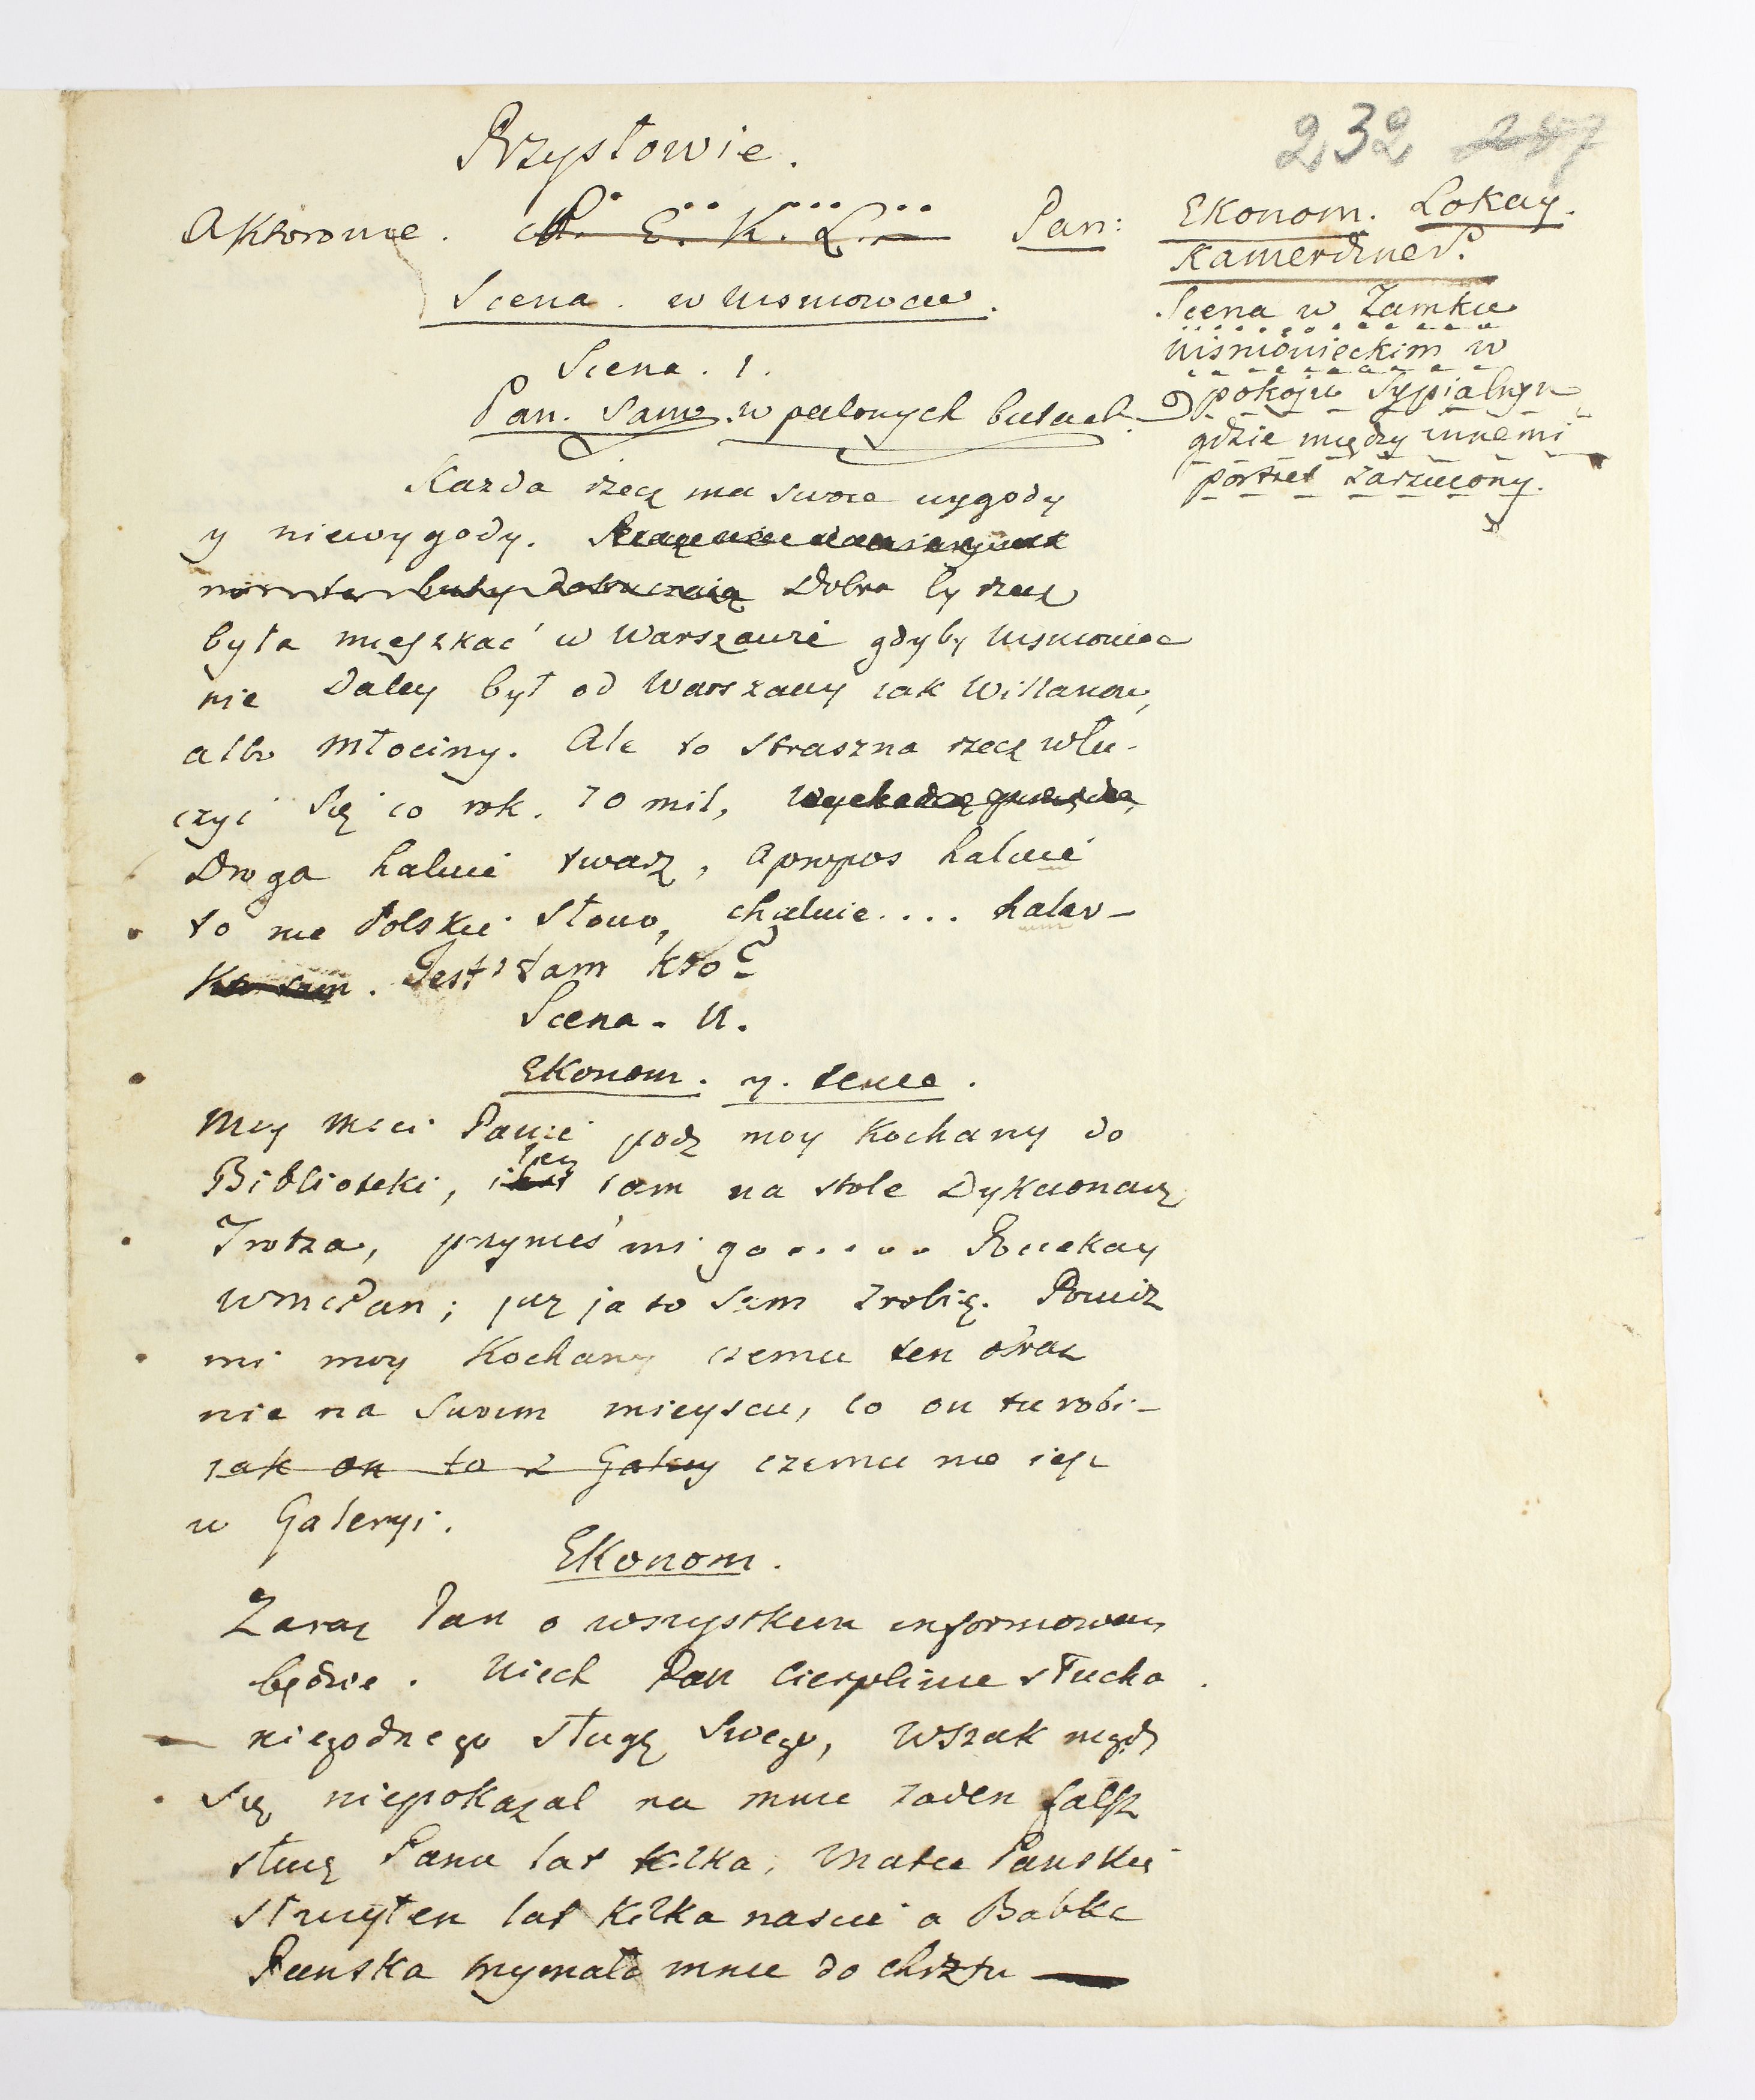 Przysłowie.
232 287
Aktorowie. P. E. K. L. Pan: Ekonom. Lokay.
Kamerdiner.
Scena. w Wisniowcu.
Scena w Zamku
Wisniowieckim w
pokoju Sypialnym
gdzie między innemi
portret zarzucony.
Scena. 1.
Pan. Sam. w palonych butach.
Kazda rzecz ma swoie wygody
y niewygody.
buty Dobra by rzecz
była mieszkać w Warszawie gdyby Wisniowiec
nie daley był od Warszawy iak Willanow,
albo Młociny. Ale to straszna rzecz włu-
czyć się co rok. 70 mil, wychodzę
Droga haluie twarz, apropos haluie
to nie Polskie słowo, chaluie.... haler-
ka sam. Jest tam kto?
Scena. II.
Ekonom. y. tenze.
Moy Mci Panie podz moy Kochany do
Biblioteki, iest tam na stole Dykcionarz
Trotza, przynieś mi go...... Poczekay
WmcPan; juz ja to sam zrobię. Powidz
mi moy Kochany czemu ten obraz
nie na swoim mieyscu, co on tu robi-
iak on to z Galery czemu nie iest
w Galeryi.
Ekonom.
Zaraz Pan o wszystkim informowany
będzie. Niech Pan cierpliwie słucha
niegodnego sługę swego, wszak nigdy
się niepokazal na mnie zaden falsz
służę Panu lat kilka, Matce Panskiey
służyłem lat kilka nascie a Babka
Panska trzymała mnie do chrztu —